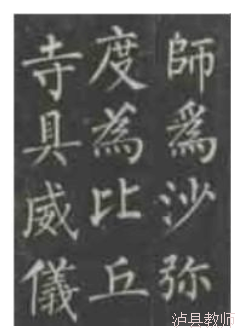 師為沙弥
度為比丘
寺具威儀
泸县教师